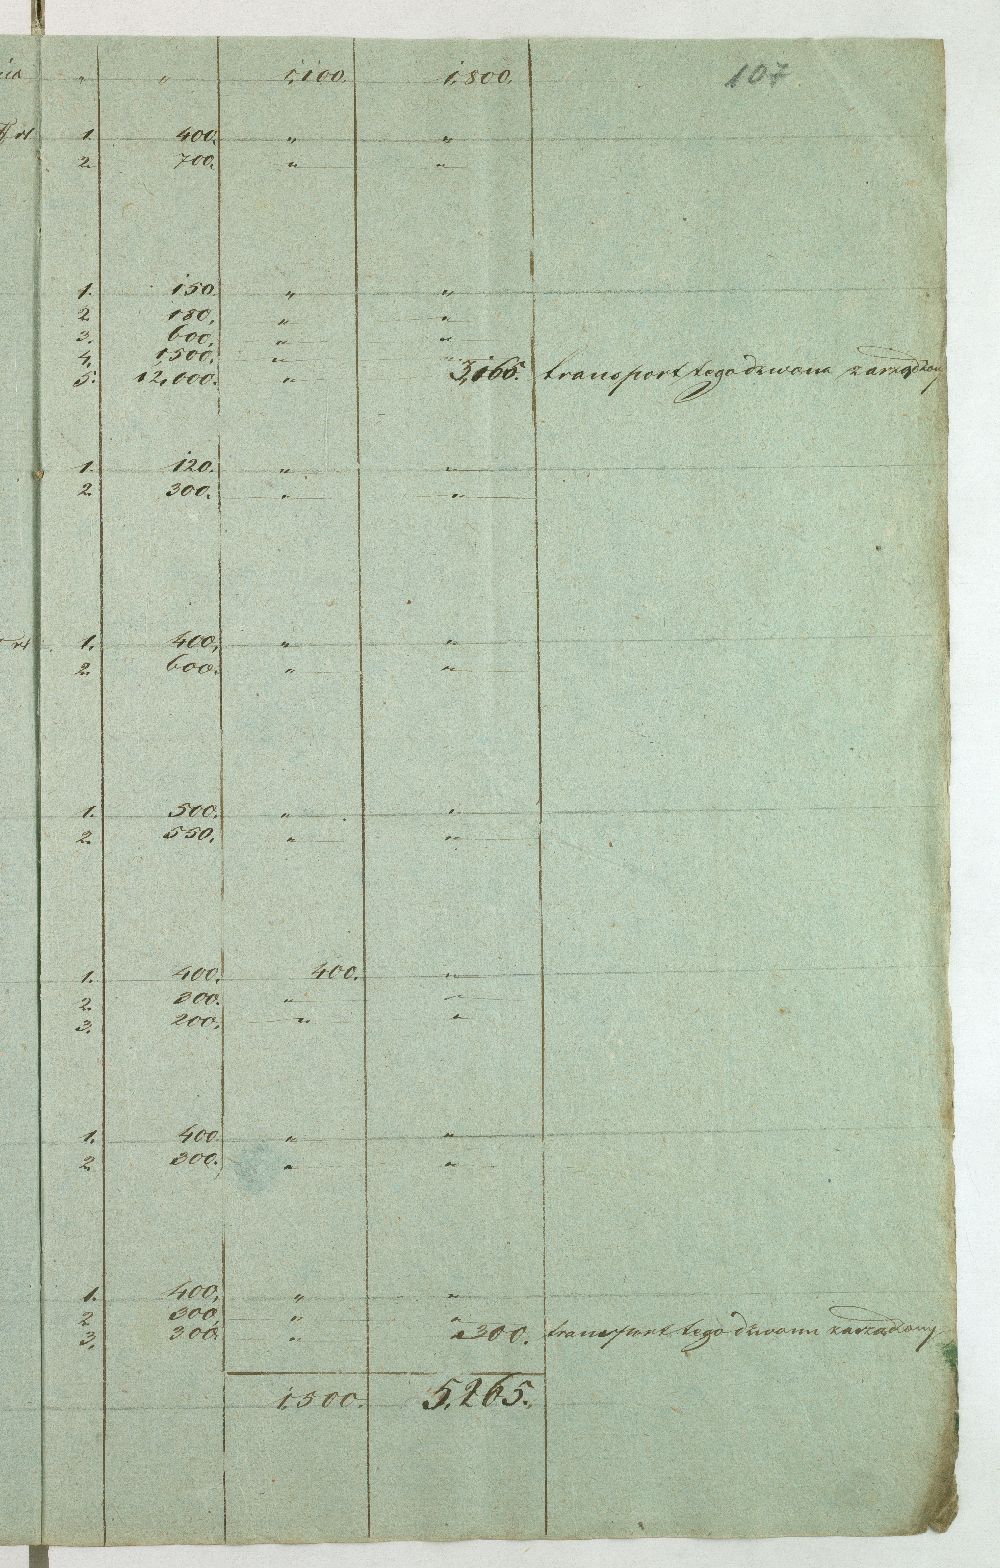 107
nia " " 1,100. 1,800.
rt 1. 400. " "
2. 700. " "
1. 150. " "
2. 180. " "
3. 600. " "
4. 1500. " "
5. 12,000. " 3,165. transport tego dzwona zarządzony
1. 120. " "
2. 300. " "
rt 1. 400. " "
2. 600. " "
1. 500. " "
2. 550. " "
1. 400. 400. "
2. 300. " "
3. 200. " "
1. 400. " "
2. 300. " "
1. 400. " "
2. 300. " "
3. 300. " 300. transport tego dzwonu zarządzony
1,500. 5,265.